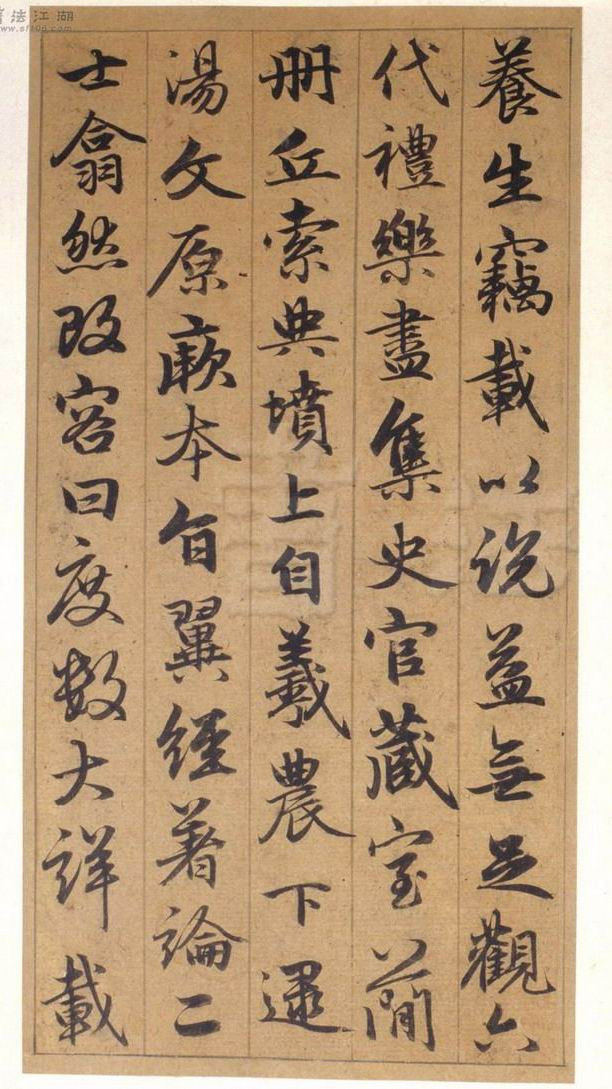 養生竊載以説益無足觀六
代禮樂盡集史官藏室簡
册丘索典墳上自羲農下逮
湯文原厥本旨翼經著論二
士翕然改容曰度數大詳載
書法江湖